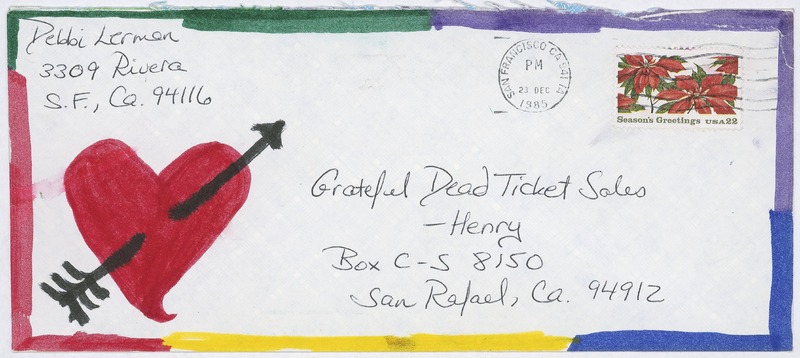 Debbi Lerman
3309 Rivera
S.F., Ca. 94116
SAN FRANCISCO CA 941 1A
PM
23 DEC
1985
Season's Greetings USA 22
Grateful Dead Ticket Sales
—Henry
Box C-S 8150
San Rafael, Ca. 94912